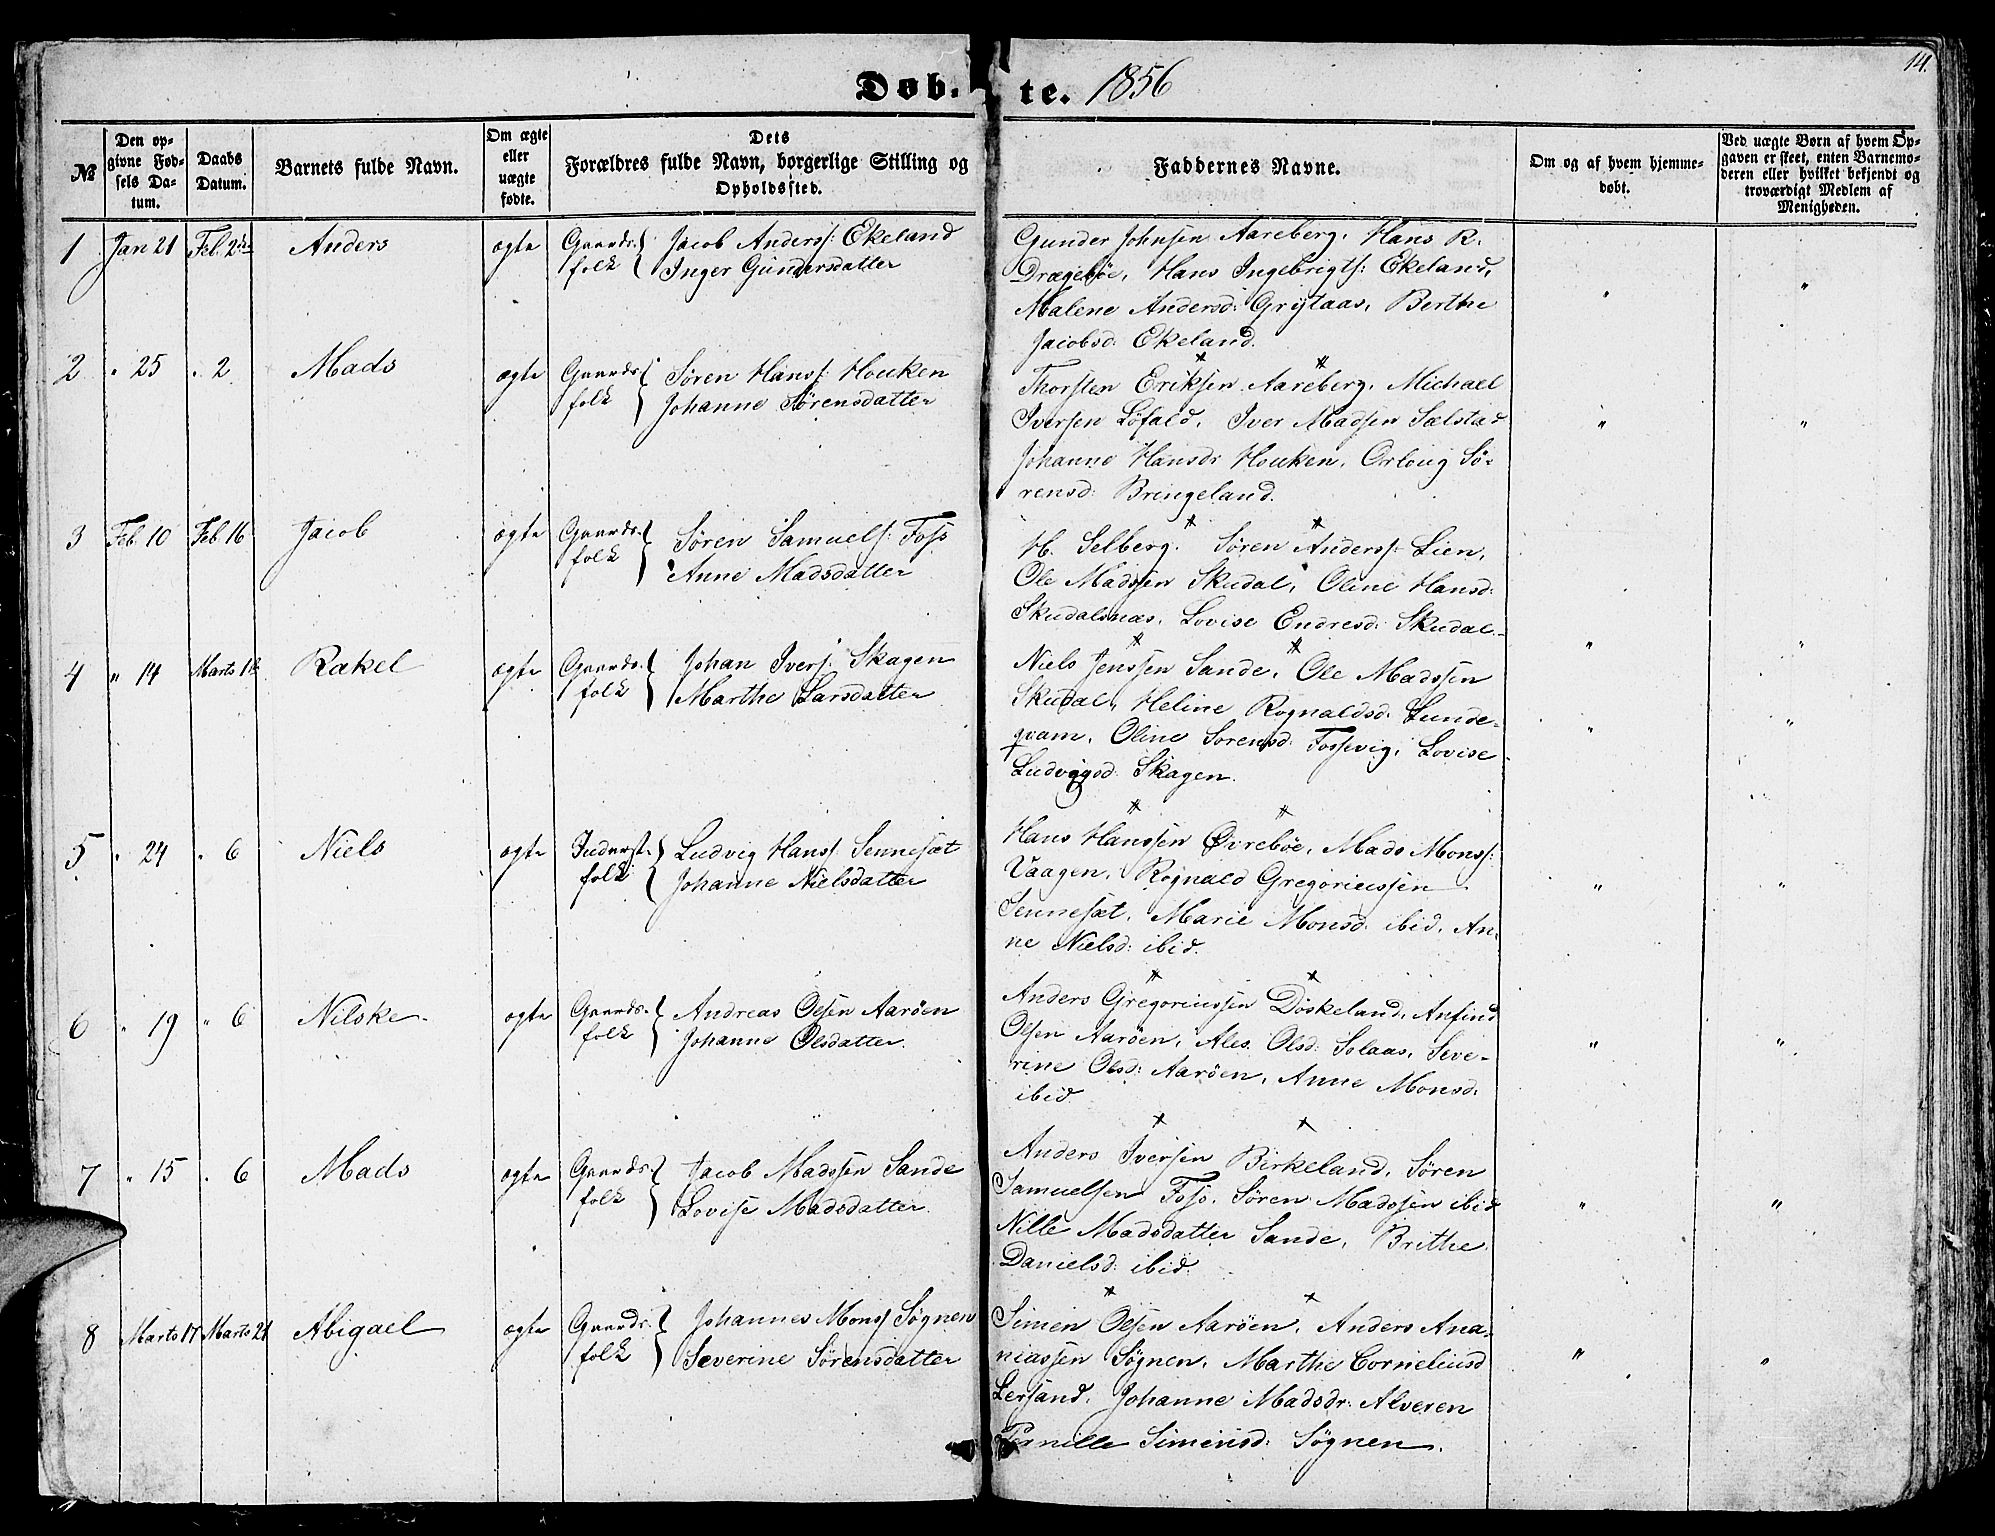 14.
Døb- te. 1856
№
Den op-
givne Fød-
sels Da-
tum.
Daabs
Datum.
Barnets fulde Navn.
Om ægte
eller
uægte
fødte.
Dets
Forældres fulde Navn, borgerlige Stilling og
Opholdssted.
Faddernes Navne.
Om og af hvem hjemme-
døbt.
Ved uægte Børn af hvem Op-
gaven er skeet, enten Barnemo-
deren eller hvilket bekjendt og
troværdigt Medlem af
Menigheden.
1 Jan 21 Feb. 2den Anders ægte Gaards- folk { Jacob Anderss: Ekeland
Inger Gundersdatter
Gunder Johnsen Aareberg, Hans R.
Drægebøe, Hans Ingebrigts: Ekeland,
Malene Andersd: Grytaas, Berthe
Jacobsd: Ekeland.
" "
2 " 25 " 2 Mads ægte Gaards- folk } Søren Hanss: Houken
Johanne Sørensdatter
Thorsten Eriksen Aareberg, Michael
Iversen Löfald, Iver Madsen Sælstad
Johanne Hansdr Houken, Orloug Sö-
rensd: Bringeland.
" "
3 Feb. 10 Feb. 16 Jacob ægte Gaards- folk } Søren Samuels: Foss
Anne Madsdatter
H. Selberg. Søren Anderss: Lien,
Ole Madssen Skudal, Oline Hansd:
Skudalsnæs, Lovise Endresd: Skudal.
" "
4 " 14 Marts 1ste Rakel ægte Gaards- folk { Johan Ivers: Skagen
Marthe Larsdatter
Niels Jenssen Sande, Ole Madssen
Skudal, Heline Rognaldsd: Lunde-
qvam, Oline Sorensd: Fossevig, Lovise
Ludvigsd: Skagen.
" "
5 " 24 " 6 Niels ægte Inderst- folk } Ludvig Hanss: Sennesæt
Johanne Nielsdatter
Hans Hanssen Øvrebøe, Mads Monss:
Vaagen, Rognald Gregoriussen
Sennesæt, Marie Monsd: ibid, An-
ne Nielsd: ibid.
" "
6 " 19 " 6 Nilske ægte Gaards- folk } Andreas Olsen Aaröen
Johanne Olsdatter.
Anders Gregoriussen Döskeland, Anfind
Olsen Aaröen, Ales Olsd: Solaas, Seve-
rine Olsd: Aaröen, Anne Monsd:
ibid
" "
7 " 15 " 6 Mads ægte Gaards- folk } Jacob Madssen Sande
Lovise Madsdatter.
Anders Iversen Birkeland, Søren
Samuelsen Foss, Søren Madssen ibid
Nille Madsdatter Sande, Brithe
Danielsd: ibid.
" "
8 Marts 17 Marts 21 Abigael ægte Gaards- folk } Johannes Monss Søgnen
Severine Sørensdatter
Simen Olsen Aaröen, Anders Ana-
niassen Søgnen, Marthe Corneliusd
Lersand, Johanne Madsdr: Alveren
Pernille Simensd: Søgnen.
" "